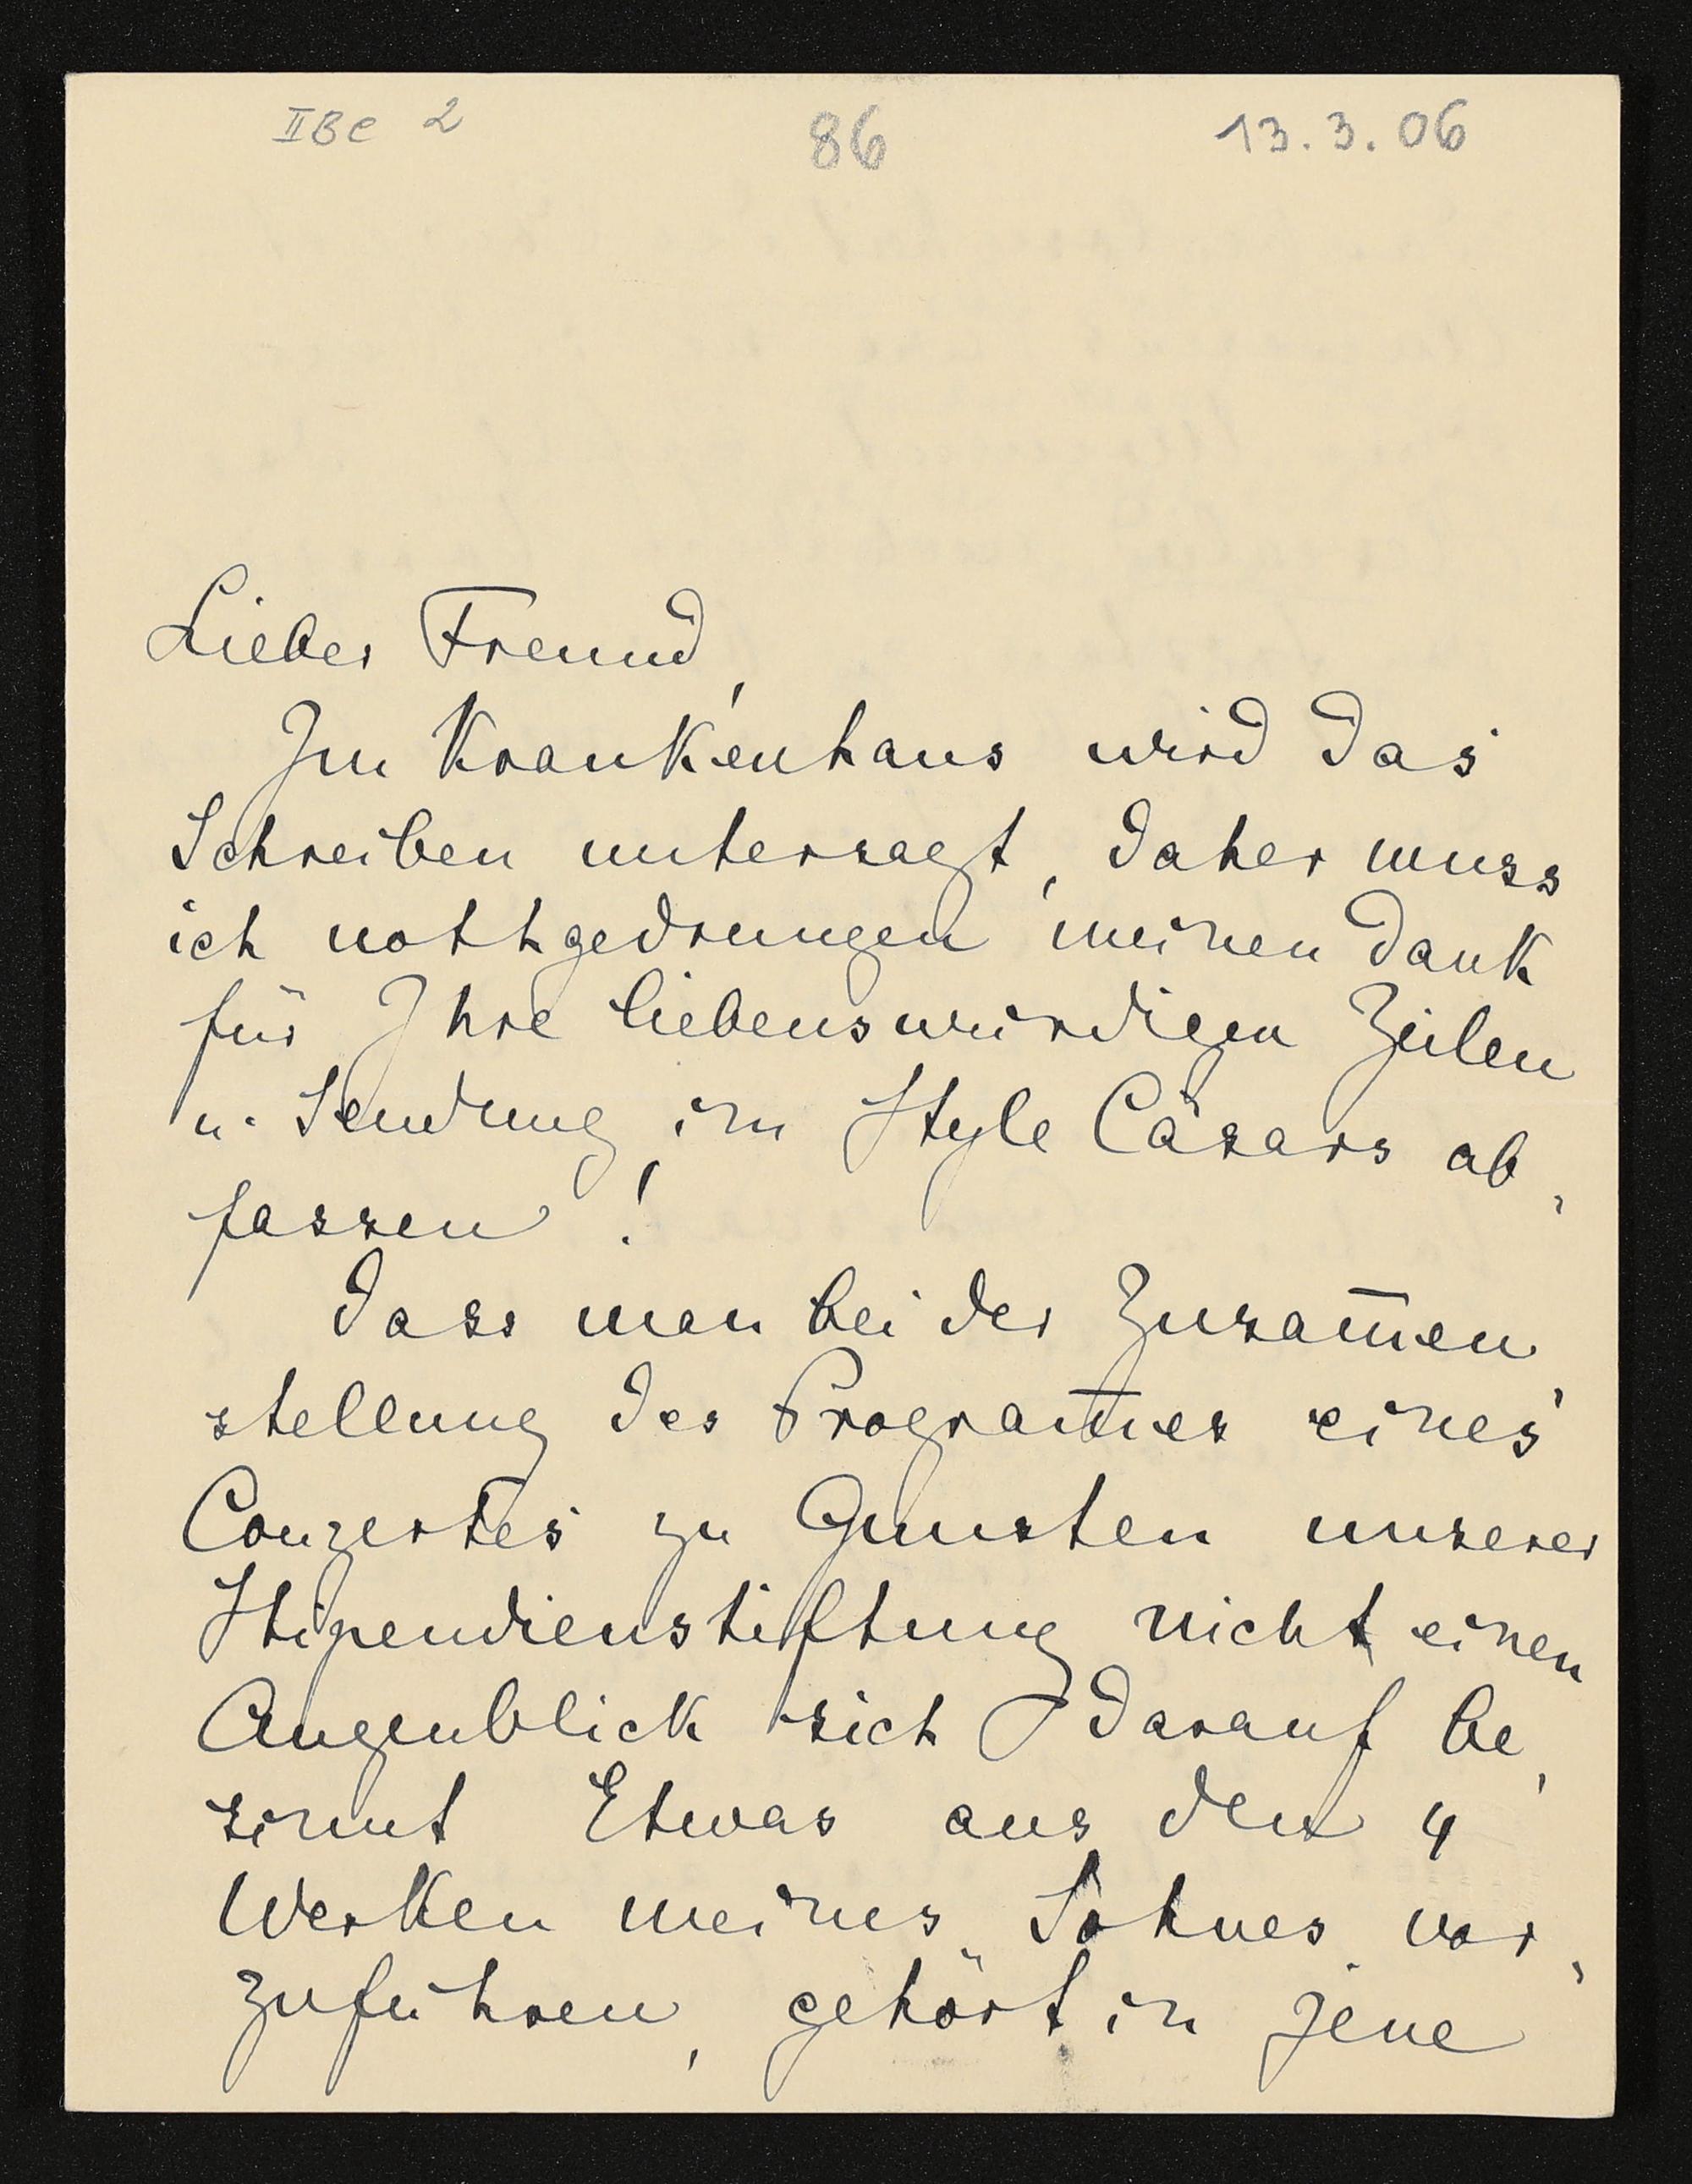 IIBe 2 86 13.3.06
Lieber Freund,
Im Krankenhaus wird das
Schreiben untersagt, daher muss
ich nothgedrungen meinen Dank
für Ihre liebenswürdigen Zeilen
u. Sendung im Style Cäsars ab-
fassen!
Dass man bei der Zusam̅en-
stellung des Program̅es eines
Conzertes zu Gunsten unserer
Stipendienstiftung nicht einen
Augenblick sich darauf be-
sinnt Etwas aus den 4
Werken meines Sohnes vor-
zuführen, gehört in jene